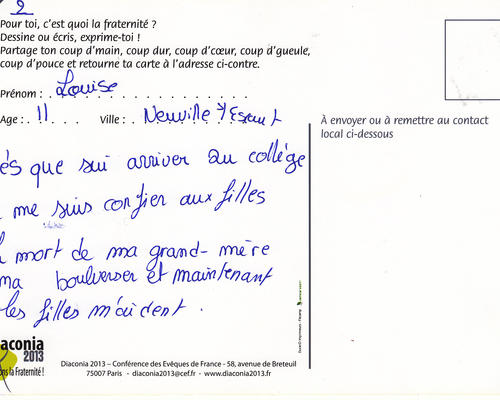 2
Pour toi, c'est quoi la fraternité ?
Dessine ou écris, exprime-toi !
Partage ton coup d'main, coup dur, coup d'cœur, coup d'gueule,
coup d'pouce et retourne ta carte à l'adresse ci-contre.
Prénom : Louise
Age : 11 Ville : Neuville
À envoyer ou à remettre au contact
local ci-dessous
és que sui arriver au collége
me suis confier aux filles
mort de ma grand-mère
ma boulverser et maintenant
les filles m'aident.
aconia
2013
ons la Fraternité !
Diaconia 2013 – Conférence des Evêques de France - 58, avenue de Breteuil
75007 Paris - diaconia2013@cef.fr - www.diaconia2013.fr